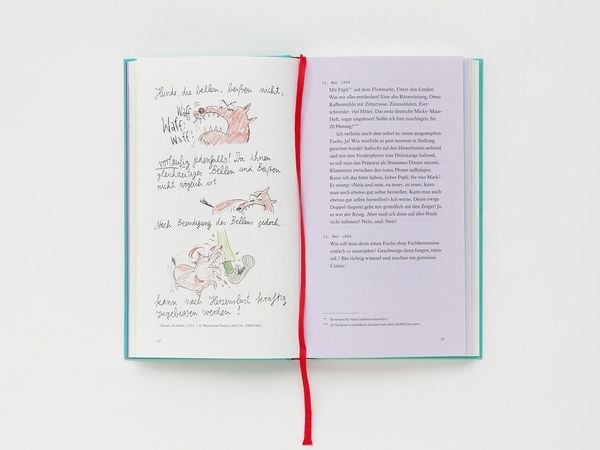 Hunde, die bellen, beißen nicht,
Waff!
Waff!
Waff!
vorläufig jedenfalls! Da ihnen
gleichzeitiges Bellen und Beißen
nicht möglich ist.
Nach Beendigung des Bellens jedoch..
kann nach Herzenslust kräftig
zugebissen werden!
42
11. Mai 1956
Mit Papli auf dem Flohmarkt, Unter den Linden.
Was wir alles entdecken! Eine alte Ritterrüstung, Omas
Kaffeemühle mit Zittertasse, Zinnsoldaten, Eier-
schneider, viel Hitler. Das erste deutsche Micky-Maus-
Heft, sogar ungelesen! Sollte ich hier zuschlagen, für
20 Pfennig?
Ich verliebe mich aber sofort in: einen ausgestopften
Fuchs. Ja! Wie morbide er post mortem in Stellung
gerichtet wurde! Aufrecht auf den Hinterbeinen stehend
und mit den Vorderpfoten eine Holzstange haltend,
so soll man das Präparat als Stummen Diener nutzen,
Klamotten zwischen den toten Pfoten aufhängen.
Kann ich das bitte haben, lieber Papli, für vier Mark?
Er streng: «Nein und nein, zu teuer, zu teuer, kann
man auch ebenso gut selbst herstellen! Kann man auch
ebenso gut selbst herstellen!» Ich weine. Deine ewige
Doppel-Sagerei geht mir gründlich auf den Zeiger! Ja,
es war der Krieg. Aber muß ich denn auf alles Rück-
sicht nehmen? Nein, und: Nein!
12. Mai 1956
Wie soll man denn einen Fuchs ohne Fachkenntnisse
einfach so ausstopfen? Geschweige denn fangen, töten
auf.? Bin richtig wütend und zeichne ein gemeines
Comic:
43